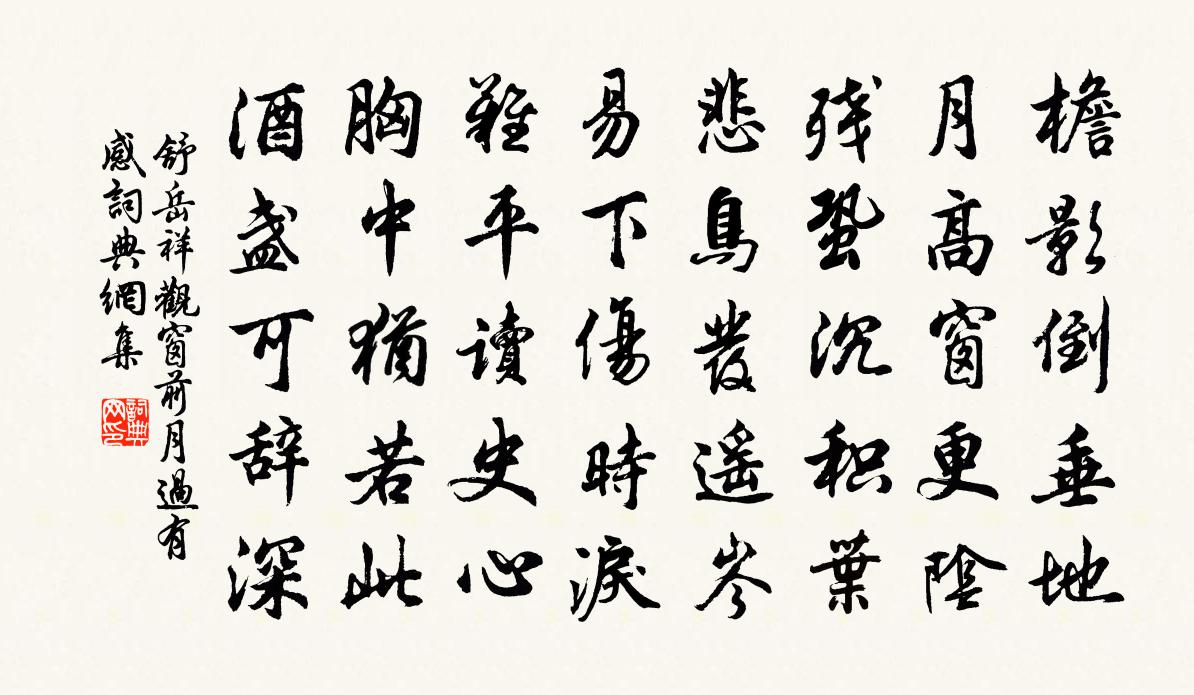 檐影倒垂地
月高窗更陰
残蛩沉积葉
悲鳥發遥岑
易下傷時淚
難平讀史心
胸中猶若此
酒盏可辞深
舒岳祥觀窗前月過有
感詞典網集
詞典网印